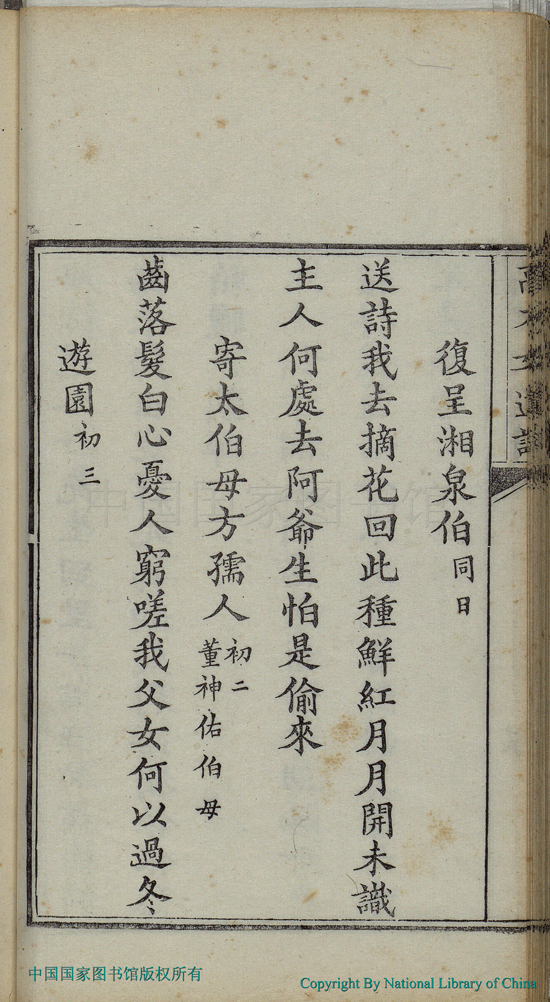 復呈湘泉伯同日
送詩我去摘花回此種鮮紅月月開未識
主人何處去阿爺生怕是偷來
寄太伯母方孺人初二董神佑伯母
齒落髮白心憂人窮嗟我父女何以過冬
遊園初三
中国国家图书馆
中国国家图书馆版权所有
Copyright By National Library of China